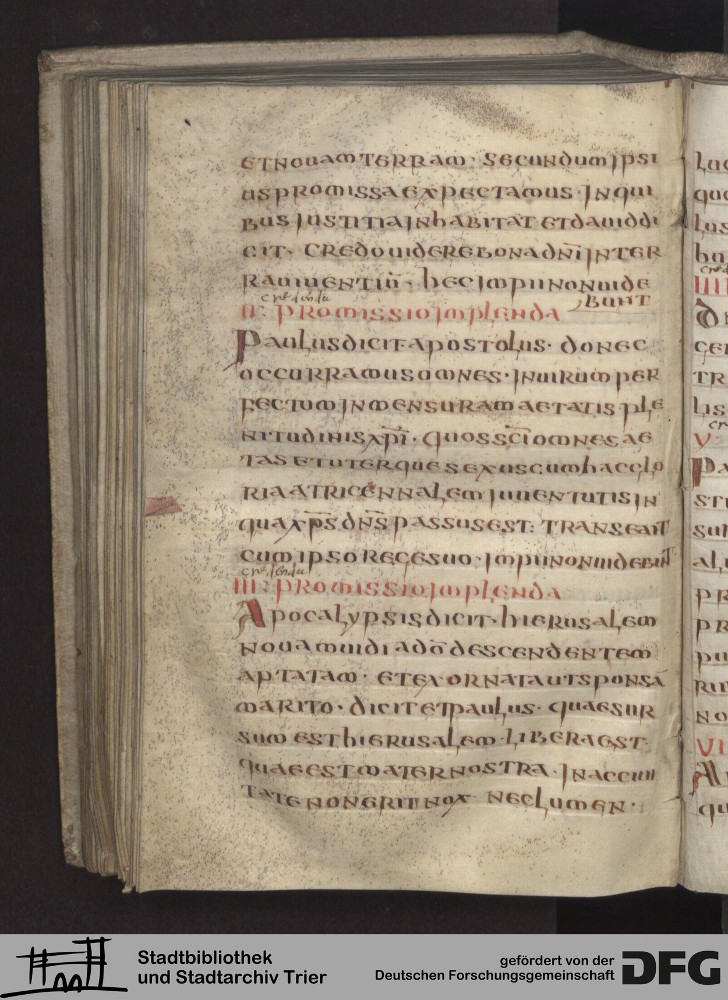 ET NOUAM TERRAM · SECUNDUM IPSI
US PROMISSA EXPECTAMUS · IN QUI
BUS IUSTITIA INHABITAT ET DAUID DI
CIT · CREDO UIDERE BONA DNI INTER
RA UIUENTIU · HEC IMPII NON UIDE
BUNT
credenda
II: PROMISSIO IMPLENDA
PAULUS DICIT APOSTOLUS · DONEC
OCCURRAMUS OMNES · IN UIRUM PER
FECTUM IN MENSURAM AETATIS PLE
NITUDINIS XPI · QUOS SCI OMNES AE
TAS ET UTERQUE SEXUS CUM HAC GLO
RIA A TRICENNALEM IUUENTUTIS IN
QUA XPS DNS PASSUS EST : TRANSEANT
CUM IPSO REGE SUO · IMPII NON UIDEBUNT
credenda
III: PROMISSIO IMPLENDA
APOCALYPSIS DICIT · HIERUSALEM
NOUAM UIDI A DO DESCENDENTEM
APTATAM · ET EXORNATA UT SPONSA
MARITO · DICIT ET PAULUS · QUAE SUR
SUM EST HIERUSALEM · LIBERA EST :
QUAE EST MATER NOSTRA · IN AC CIUI
TATE NON ERIT NOX · NEC LUMEN ·
Stadtbibliothek
und Stadtarchiv Trier
gefördert von der
Deutschen Forschungsgemeinschaft
DFG